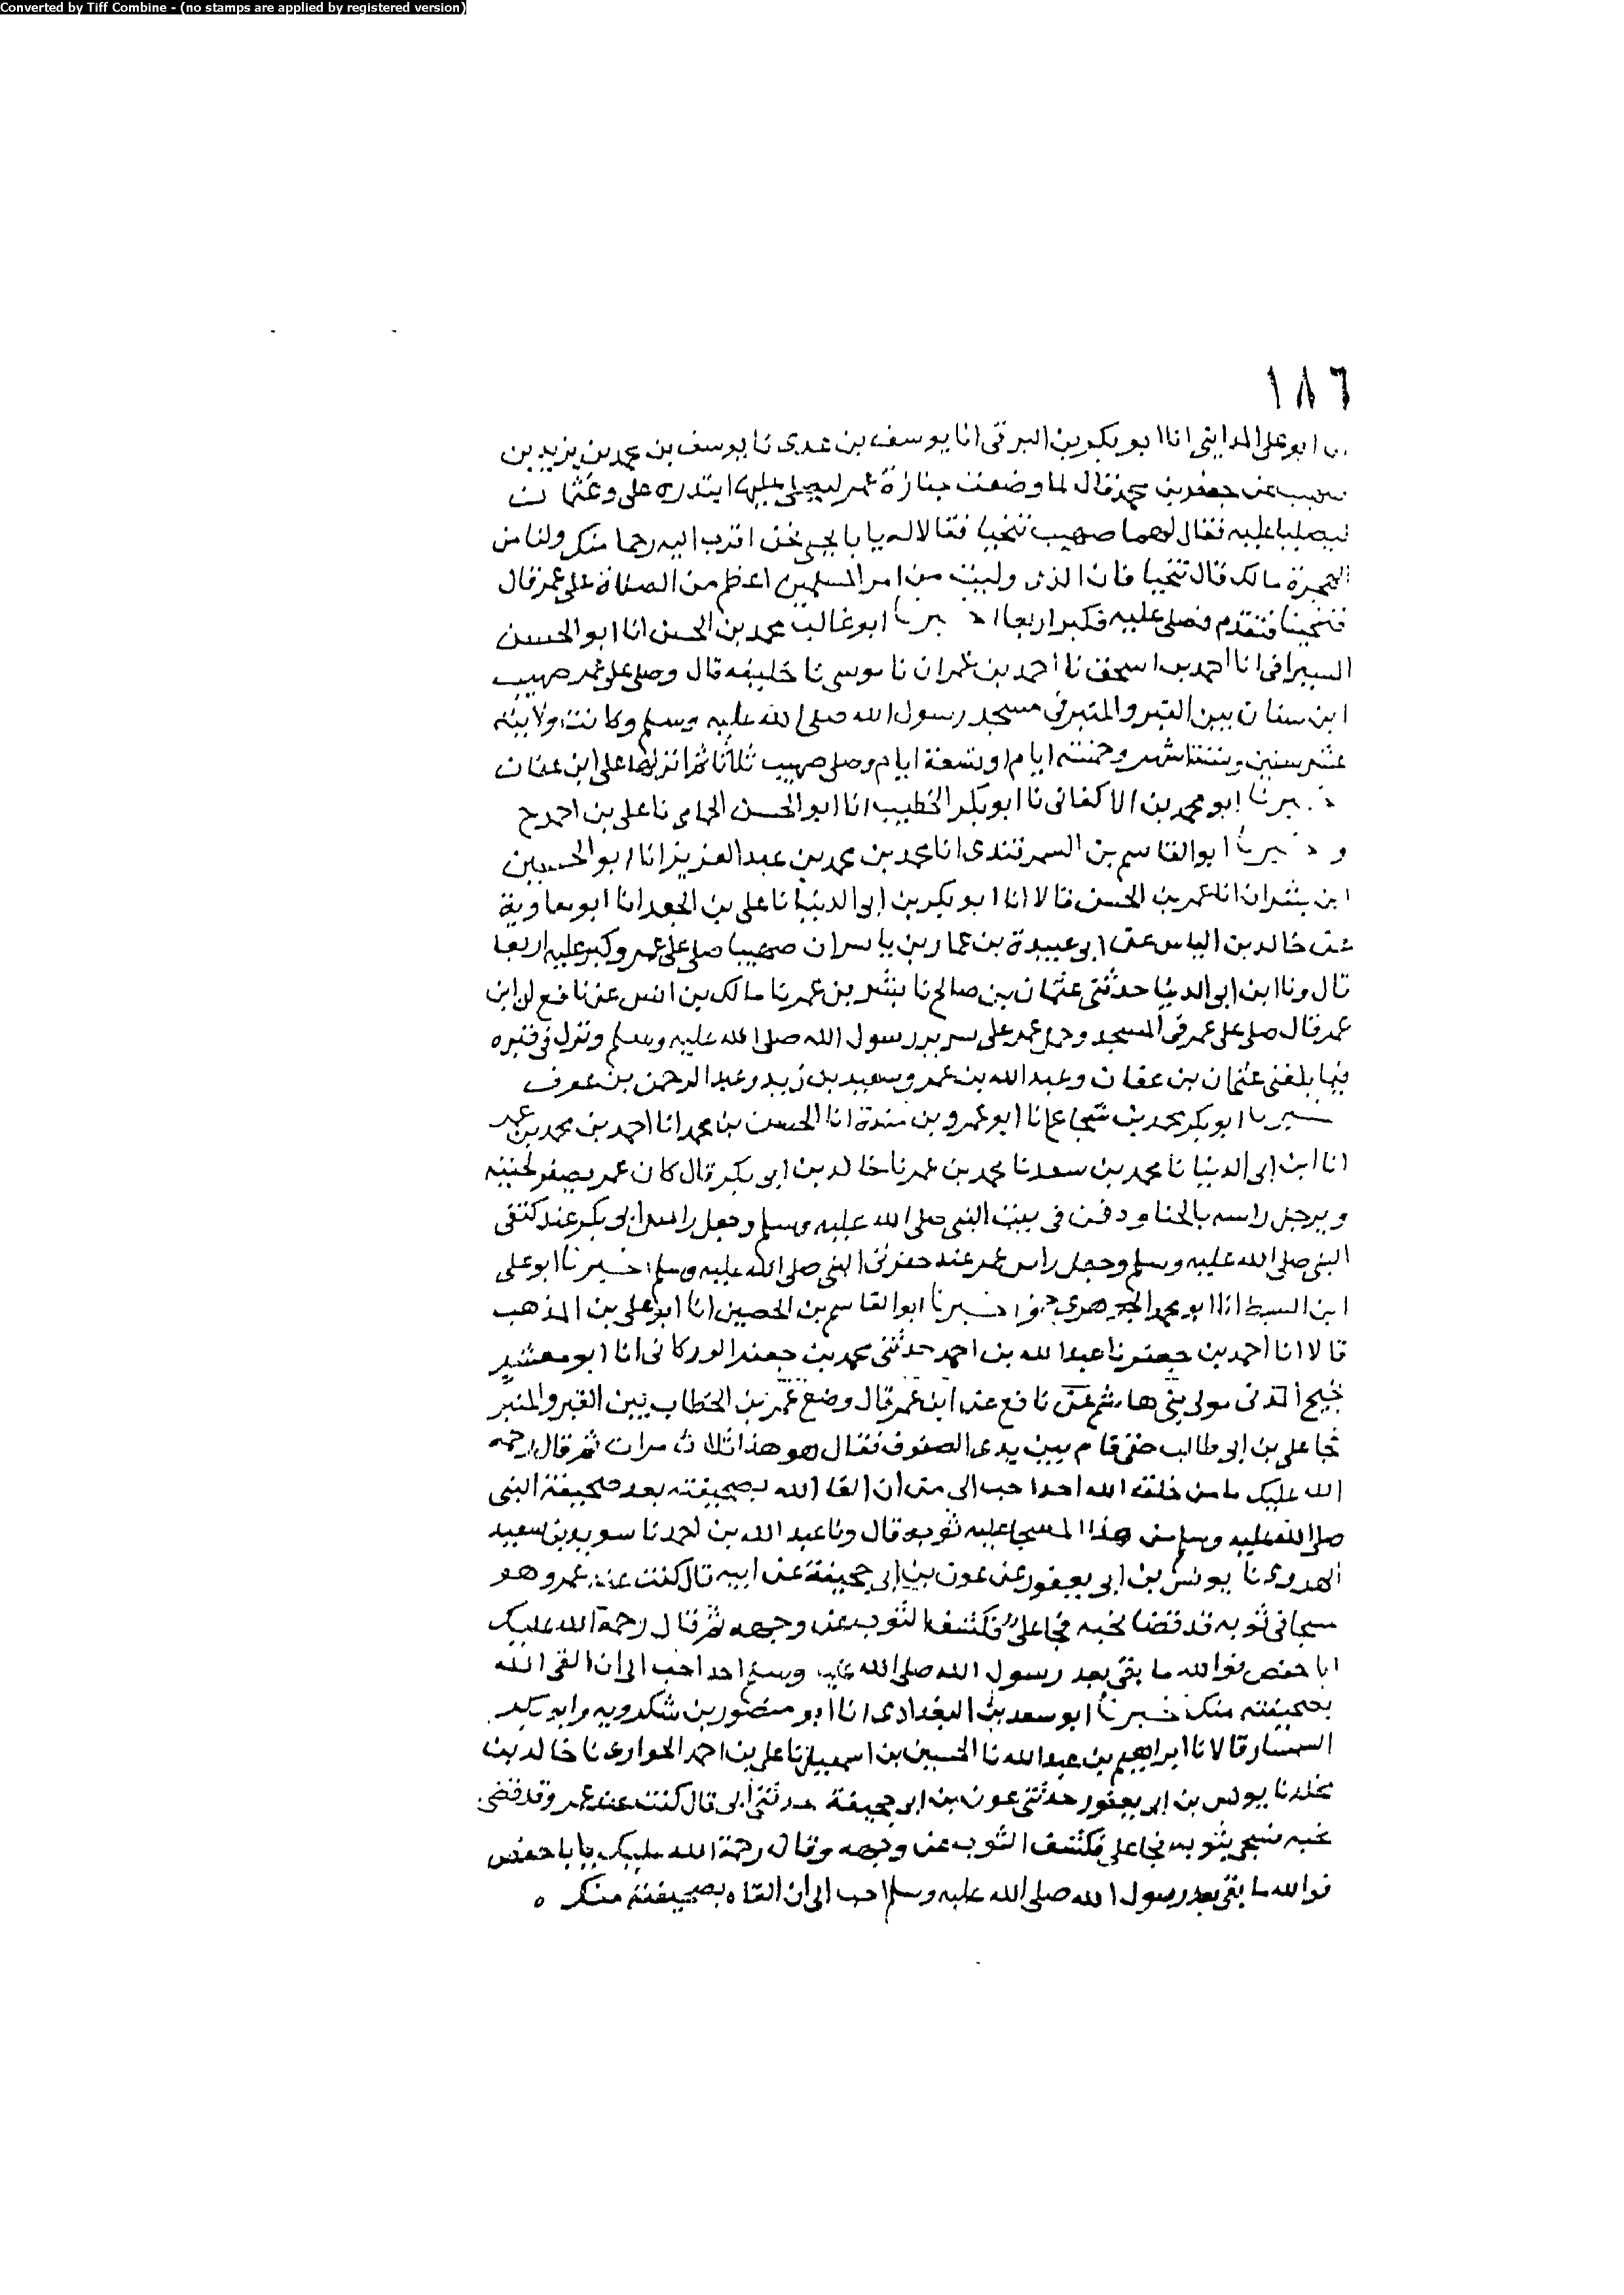 Converted by Tiff Combine - (no stamps are applied by registered version)
١٨٦
ابو على المدايني انا ابو بكر بن البرقى انا يوسف بن عدى نا يوسف بن محمد بن يزيد بن
عن جعفر بن محمد قال لما وضعت جنازة عمر ليصلى عليها ابتدره على وعثمان
ليصليا عليه فقال لهما صهيب تنحيا فقالا له يا با يحيى نحن اقرب اليه رحما منك ولنا من
الهجرة مالك قال تنحيا فان الذى وليت من امر المسلمين اعظم من الصلاة على عمر قال
فتنحينا فتقدم فصلى عليه فكبر اربعا اخبرنا ابو غالب محمد بن الحسن انا ابو الحسن
السيرافى انا احمد بن اسحق نا احمد بن عمران نا موسى نا خليفه قال وصلى على عمر صهيب
ابن سنان بين القبر والمنبر فى مسجد رسول الله صلى الله عليه وسلم وكانت ولايته
عشر سنين وستة اشهر وخمسة ايام او تسعة ايام وصلى صهيب ثلاثا ثم على ابن عفان
اخبرنا ابو محمد بن الاكفانى نا ابو بكر الخطيب انا ابو الحسن الحمامى نا على بن احمد ح
واخبرنا ابو القاسم بن السمرقندى انا محمد بن محمد بن عبد العزيز انا ابو الحسين
ابن بشران انا عمر بن الحسن قالا انا ابو بكر بن ابى الدنيا نا على بن الجعد انا ابو معاوية
عن خالد بن الياس عن ابى عبيدة بن عمار بن ياسر ان صهيبا صلى على عمر وكبر عليه اربعا
قال ونا ابن ابى الدنيا حدثنى عثمان بن صالح نا بشر بن عمر نا مالك بن انس عن نافع ان ابن
عمر قال صلى على عمر فى المسجد وحمل عمر على سرير رسول الله صلى الله عليه وسلم ونزل فى قبره
فيما بلغنى عثمان بن عفان وعبد الله بن عمر وسعيد بن زيد وعبد الرحمن بن عوف
اخبرنا ابو بكر محمد بن شجاع انا ابو عمرو بن مندة انا الحسن بن محمد انا احمد بن محمد بن عمر
انا ابن ابى الدنيا نا محمد بن سعد نا محمد بن عمر نا خالد بن ابى بكر قال كان عمر يصفر لحيته
ويرجل راسه بالحنا ودفن فى بيت النبى صلى الله عليه وسلم وجعل راس ابى بكر عند كتفى
النبى صلى الله عليه وسلم وجعل راس عمر عند النبى صلى الله عليه وسلم اخبرنا ابو على
ابن السبط انا ابو محمد الجوهرى ح واخبرنا ابو القاسم بن الحصين انا ابو على بن المذهب
قالا انا احمد بن جعفر نا عبد الله بن احمد حدثنى محمد بن جعفر الوركانى انا ابو معشر
نجيح المدنى مولى بنى هاشم عن نافع عن ابن عمر قال وضع عمر بن الخطاب بين القبر والمنبر
فجا على بن ابى طالب حتى قام بين يدى الصفوف فقال هو هذا ثلاث مرات ثم قال رحمه
الله عليك ما من خلق الله احدا احب الى من ان القا الله بصحيفته بعد صحيفة النبى
صلى الله عليه وسلم من هذا المسجا عليه ثوبه قال ونا عبد الله بن احمد نا سويد بن سعيد
الهروى نا يونس بن ابى يعفور عن عون بن ابى جحيفة عن ابيه قال كنت عند عمر وهو
مسجا فى ثوبه قد قضا نحبه فجا على فكشف الثوب عن وجهه ثم قال رحمة الله عليك
ابا حفص فوالله ما بقى بعد رسول الله صلى الله عليه وسلم احد احب الى ان القى الله
بصحيفته منك اخبرنا ابو سعد بن البغدادى انا ابو منصور بن شكرويه وابو بكر
السمسار قالا نا ابراهيم بن عبد الله نا الحسين بن اسمعيل نا على بن احمد الجواربى نا خالد بن
مخلد نا يونس بن ابى يعفور حدثنى عون بن ابى جحيفة حدثنى ابى قال كنت عند عمر وقد قضى
نحبه مسجى بثوبه فجا على فكشف الثوب عن وجهه وقال رحمة الله عليك يا با حفص
فوالله ما بقى بعد رسول الله صلى الله عليه وسلم احب الى ان القاه بصحيفته منك ه